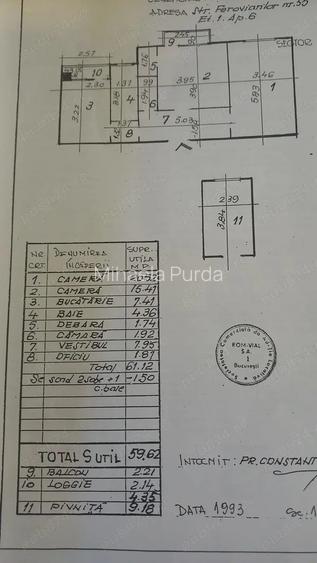 ADRESA Str. Feroviarilor nr.
Et. 1. Ap. 6
2.57
10
2.30
3
3.22
1.37
4
99
5
1.76
6
1.94
9
3.95
2
3.46
1
5.83
7
5.03
1.37
8
2.39
11
3.84
NR CRT.
DENUMIREA ÎNCĂPERII
SUPR. UTILĂ M.P.
1. CAMERĂ
2. CAMERĂ 15.41
3. BUCĂTĂRIE 7.41
4. BAIE 4.36
5. DEBARA 1.74
6. CĂMARĂ 1.92
7. VESTIBUL 7.95
8. OFICIU 1.87
Total 61.12
Se scad 2 sobe + 1 -1.50
c. baie
TOTAL S util 59,62
9. BALCON 2.21
10 LOGGIE 2.14
4.35
11 PIVNIȚĂ 9.18
Mihaela Purda
ROM-VIAL
S.A.
1
București
INTOCMIT: PR. CONSTANT
DATA 1993 sc: 1